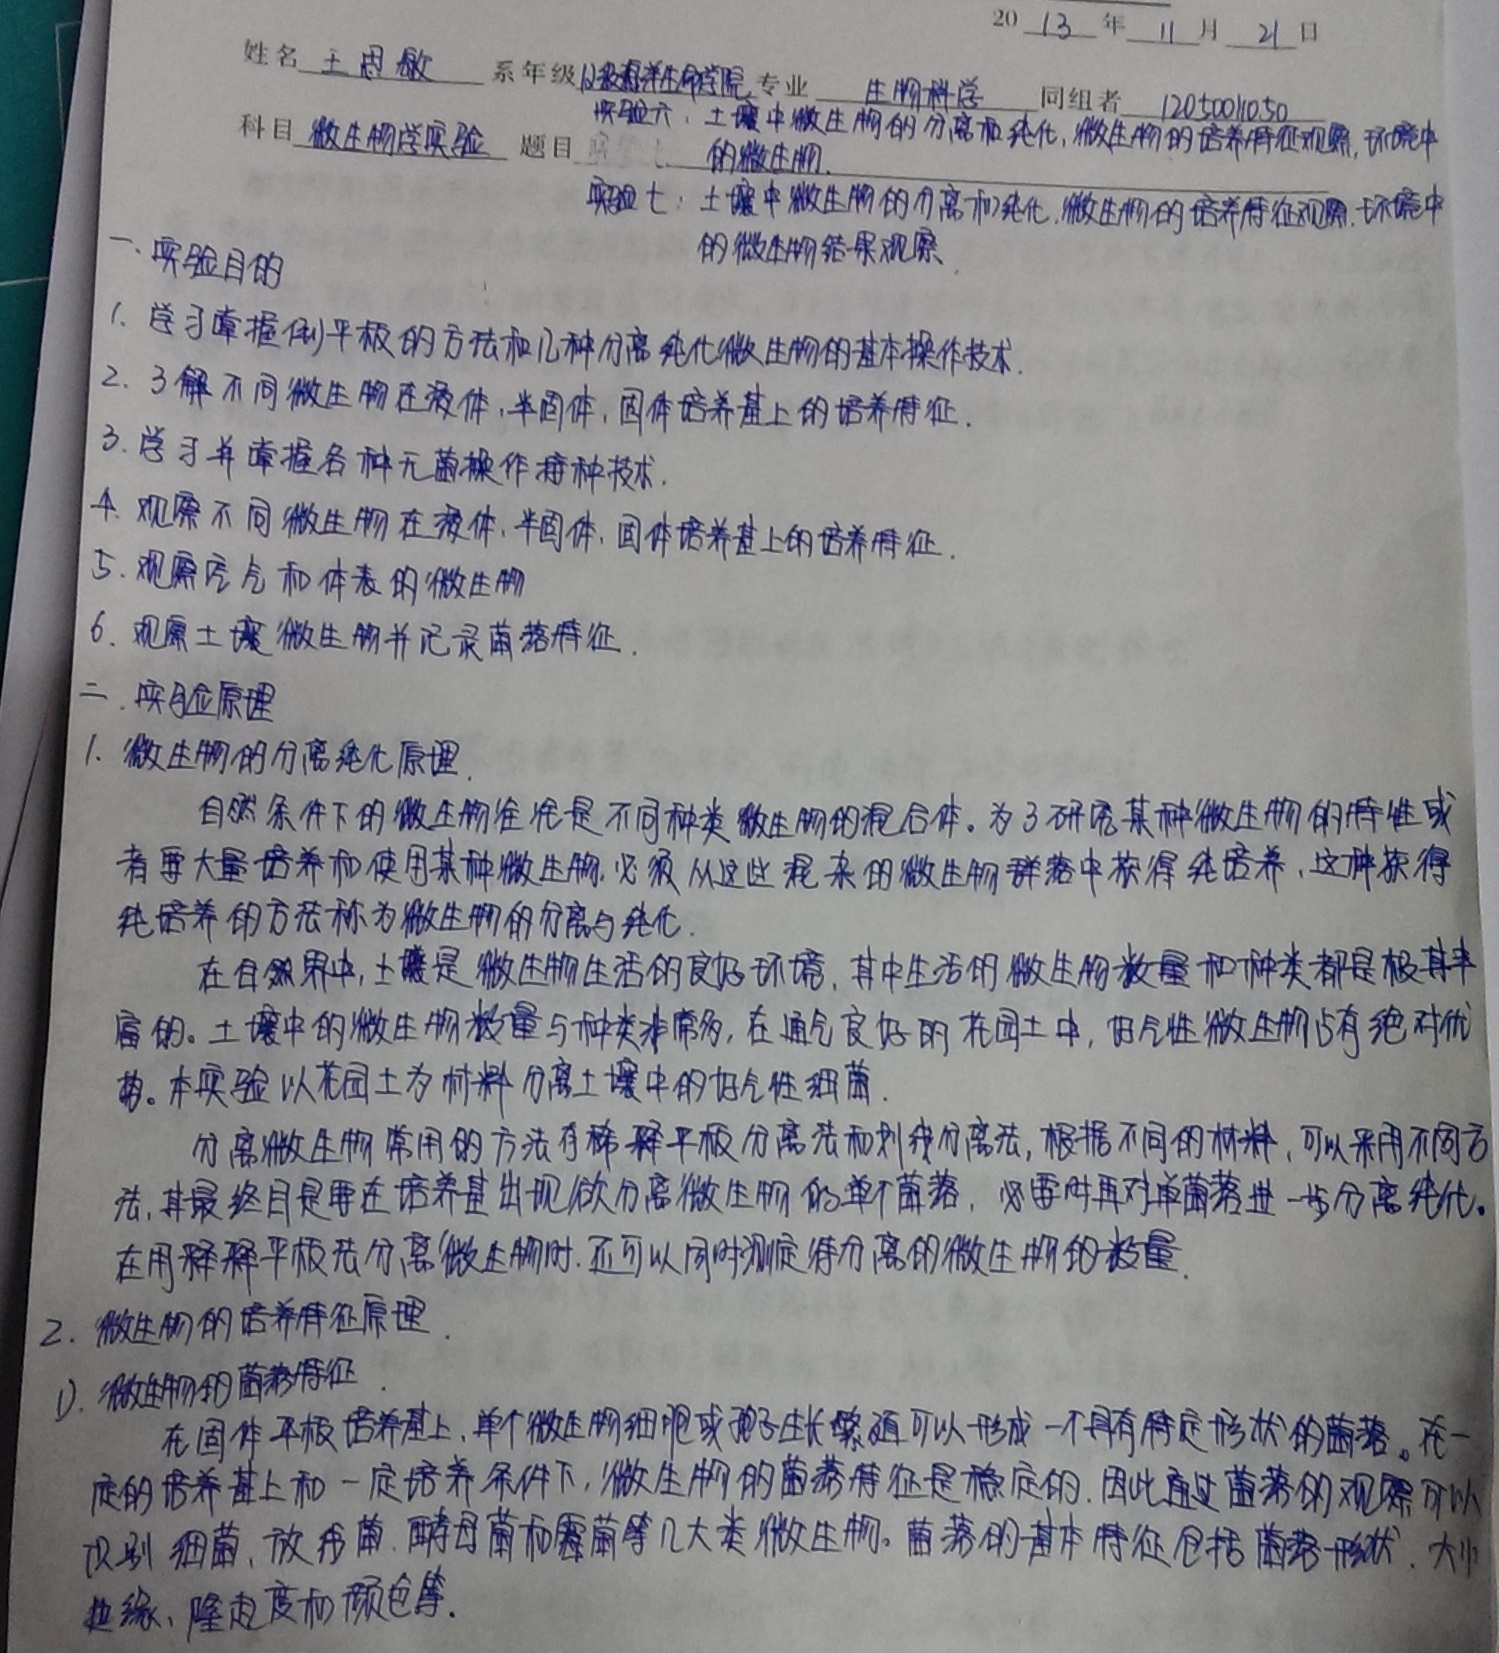 2013年11月21日
姓名 王思敏 系年级 12级海洋生命学院 专业 生物科学 同组者 12050011050
科目 微生物学实验 题目 实验六：土壤中微生物的分离和纯化,微生物的培养特征观察,环境中
的微生物.
实验七：土壤中微生物的分离和纯化.微生物的培养特征观察.环境中
的微生物结果观察.
一.实验目的
1. 学习掌握倒平板的方法和几种分离纯化微生物的基本操作技术.
2. 了解不同微生物在液体,半固体,固体培养基上的培养特征.
3. 学习并掌握各种无菌操作接种技术.
4. 观察不同微生物在液体,半固体,固体培养基上的培养特征.
5. 观察空气和体表的微生物
6. 观察土壤微生物并记录菌落特征.
二.实验原理
1. 微生物的分离纯化原理.
自然条件下的微生物往往是不同种类微生物的混合体。为了研究某种微生物的特性或
者要大量培养和使用某种微生物.必须从这些混杂的微生物群落中获得纯培养,这种获得
纯培养的方法称为微生物的分离与纯化.
在自然界中,土壤是微生物生活的良好环境,其中生活的微生物数量和种类都是极其丰
富的。土壤中的微生物数量与种类非常多,在通气良好的花园土中,好气性微生物占有绝对优
势。本实验以花园土为材料分离土壤中的好气性细菌.
分离微生物常用的方法有稀释平板分离法和划线分离法,根据不同的材料,可以采用不同方
法,其最终目是要在培养基出现欲分离微生物的单个菌落,必要时再对单菌落进一步分离纯化。
在用释释平板法分离微生物时.还可以同时测定待分离的微生物的数量.
2. 微生物的培养特征原理.
1). 微生物的菌落特征.
在固体平板培养基上,单个微生物细胞或孢子生长繁殖可以形成一个具有特定形状的菌落。在一
定的培养基上和一定培养条件下,微生物的菌落特征是稳定的.因此通过菌落的观察可以
识别细菌、放线菌.酵母菌和霉菌等几大类微生物。菌落的基本特征包括菌落形状、大小
边缘、隆起度和颜色等.